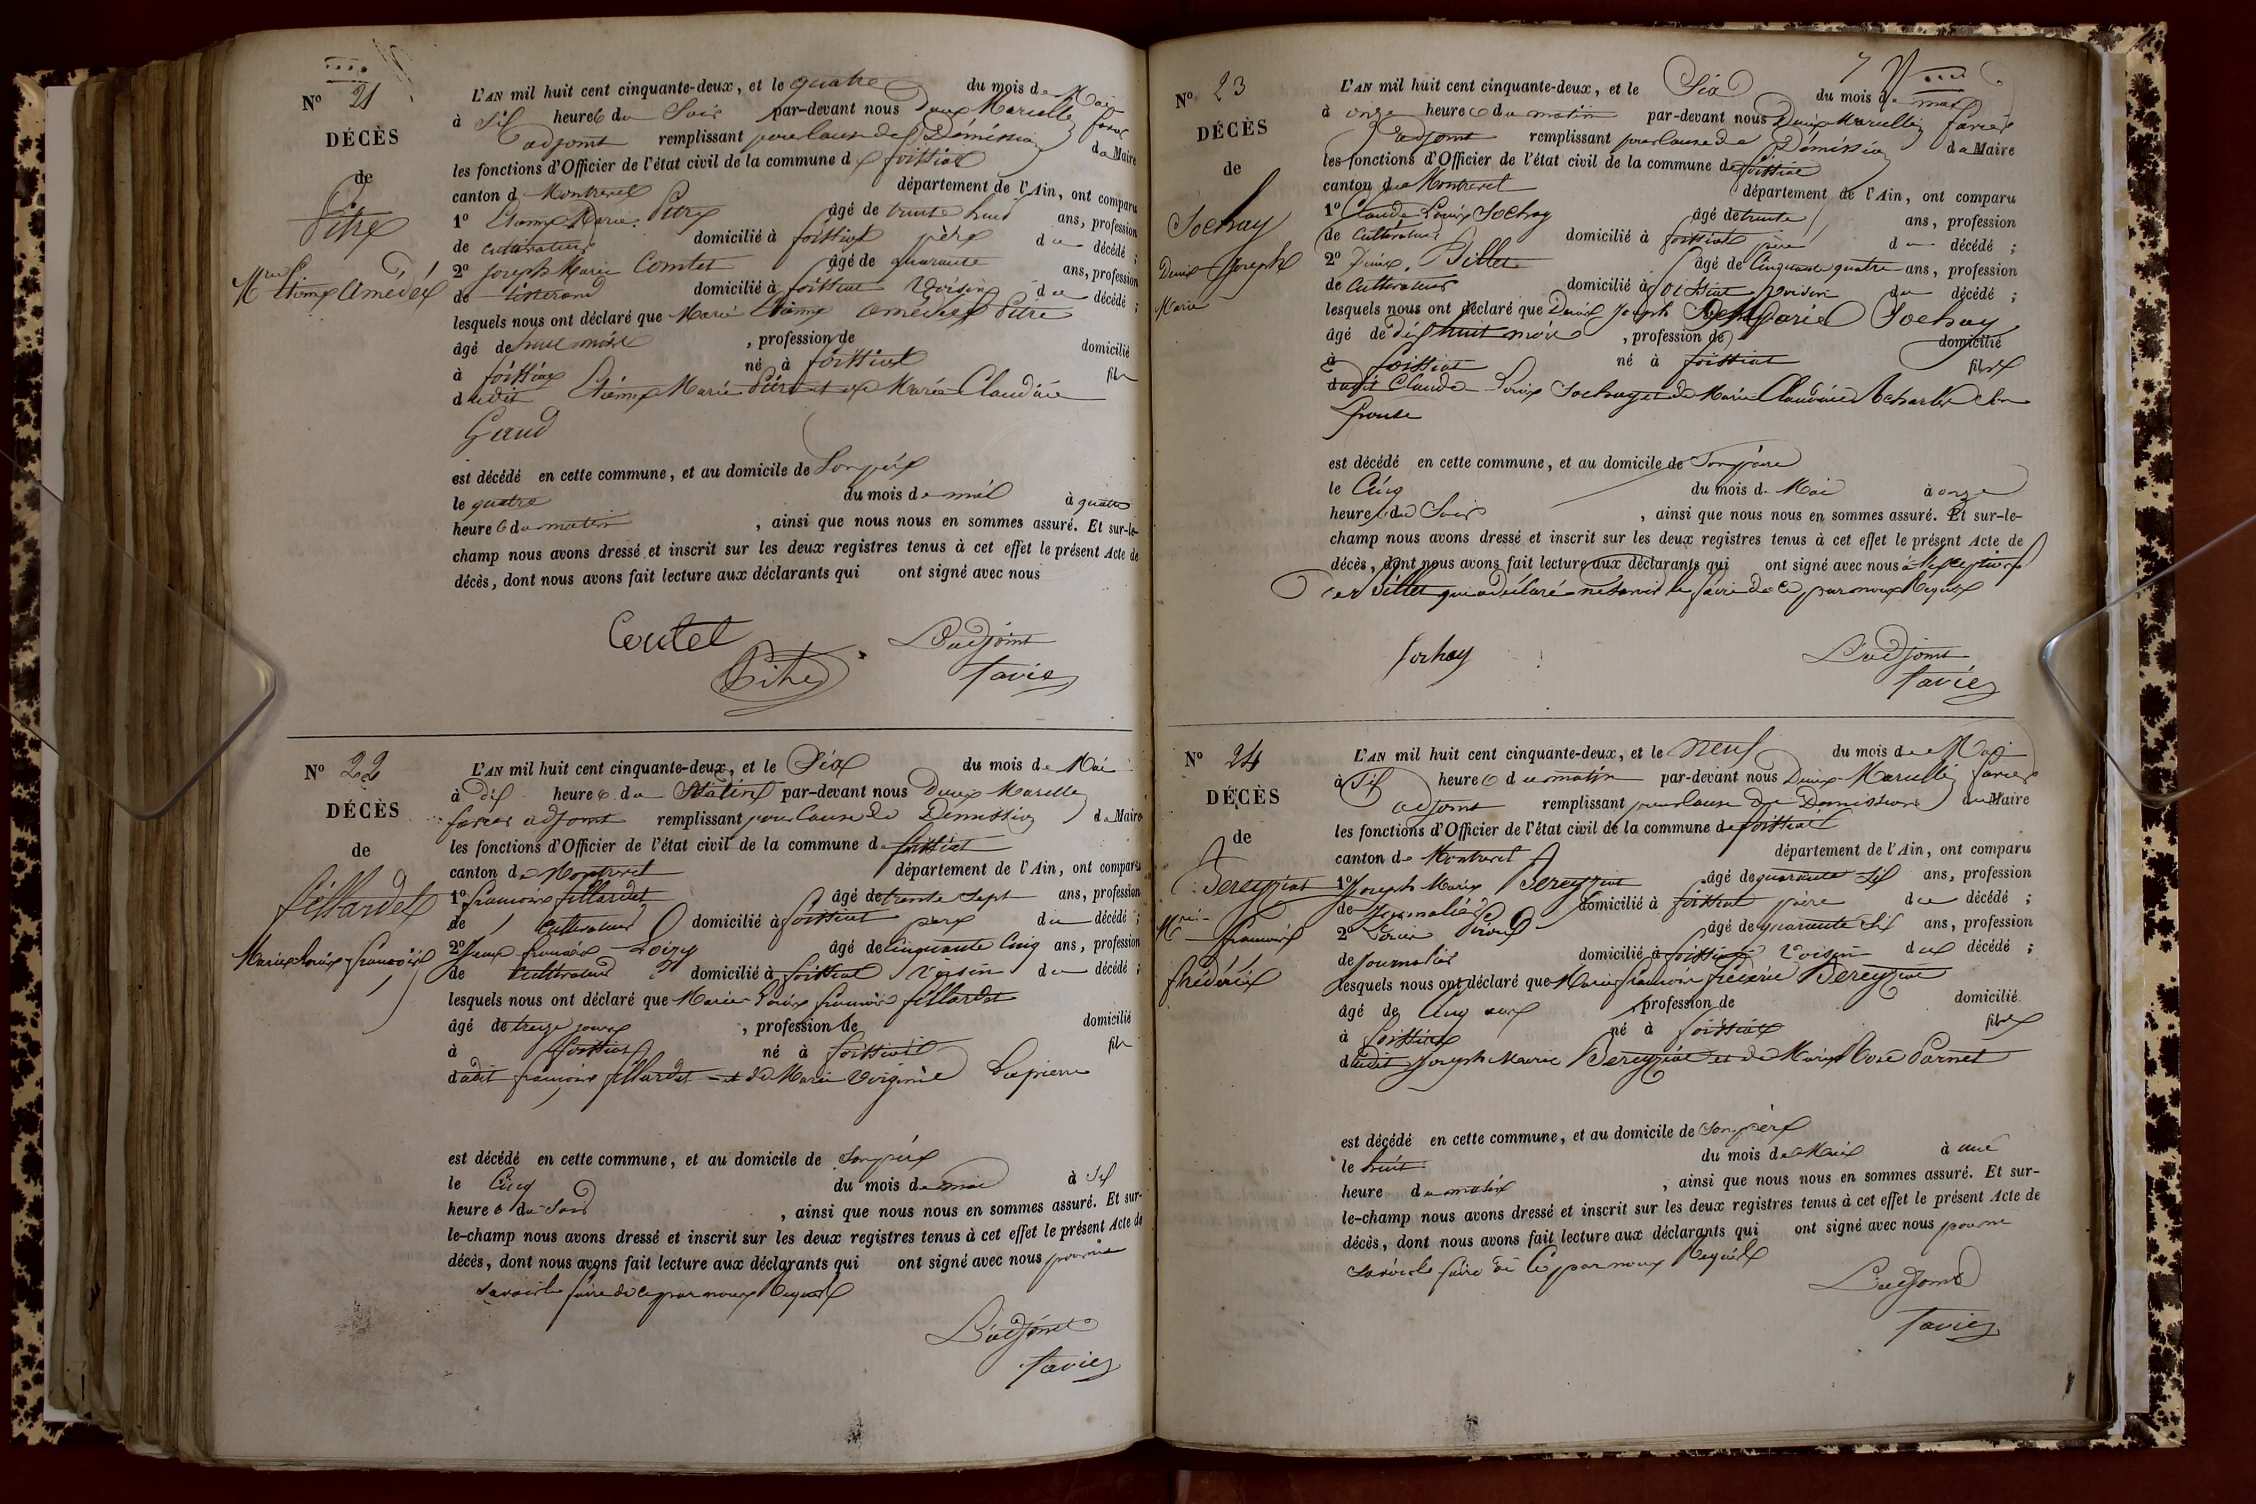 N° 21
DÉCÈS
de
Pitre
Mie Etienne Amédée
L'AN mil huit cent cinquante-deux, et le quatre du mois de Mai
à Six heures du Soir par-devant nous Denis Marcellin favier
adjoint remplissant pour cause de Démission du Maire
les fonctions d'Officier de l'état civil de la commune de foissiat
canton de Montrevel département de l'Ain, ont comparu
1° Etienne Marie Pitre âgé de trente huit ans, profession
de cultivateur domicilié à foissiat père du décédé ;
2° Joseph Marie Contet âgé de quarante ans, profession
de tisserand domicilié à foissiat Voisin du décédé ;
lesquels nous ont déclaré que Marie Etienne amédée Pitre
âgé de mois , profession de domicilié
à foissiat né à foissiat fils
dudit Etienne Marie Pitre et de Marie Claudine
Gaud
est décédé en cette commune, et au domicile de Son père
le quatre du mois de mai à quatre
heures du matin , ainsi que nous nous en sommes assuré. Et sur-le-
champ nous avons dressé et inscrit sur les deux registres tenus à cet effet le présent Acte de
décès, dont nous avons fait lecture aux déclarants qui ont signé avec nous
Contet
Pitre
L'adjoint
favier
N° 22
DÉCÈS
de
fillardet
Marie Louis françois
L'AN mil huit cent cinquante-deux, et le Six du mois de Mai
à dix heures du Matin par-devant nous Denis Marcellin
favier adjoint remplissant pour Cause de Démission du Maire
les fonctions d'Officier de l'état civil de la commune de foissiat
canton de Montrevel département de l'Ain, ont comparu
1° françois fillardet âgé de trente Sept ans, profession
de cultivateur domicilié à foissiat père du décédé ;
2° Jean françois Loisy âgé de Cinquante Cinq ans, profession
de Cultivateur domicilié à foissiat Voisin du décédé ;
lesquels nous ont déclaré que Marie Louis françois fillardet
âgé de treize jours , profession de domicilié
à foissiat né à foissiat fils
dudit françois fillardet et de Marie Virginie Lapierre
est décédé en cette commune, et au domicile de Son père
le Cinq du mois de mai à Six
heures du Soir , ainsi que nous nous en sommes assuré. Et sur-
le-champ nous avons dressé et inscrit sur les deux registres tenus à cet effet le présent Acte de
décès, dont nous avons fait lecture aux déclarants qui ont signé avec nous pour ne
Savoir le faire de ce par nous Requis
L'adjoint
favier
7
N° 23
DÉCÈS
de
Sochay
Denis Joseph
Marie
L'AN mil huit cent cinquante-deux, et le Six du mois de mai
à onze heures du matin par-devant nous Denis Marcellin favier
adjoint remplissant pour Cause de Démission du Maire
les fonctions d'Officier de l'état civil de la commune de foissiat
canton de Montrevel département de l'Ain, ont comparu
1° Claude Louis Sochay âgé de trente ans, profession
de Cultivateur domicilié à foissiat père du décédé ;
2° Denis Billet âgé de Cinquante quatre ans, profession
de Cultivateur domicilié à foissiat Voisin du décédé ;
lesquels nous ont déclaré que Denis Joseph Marie Sochay
âgé de dix huit mois , profession de domicilié
à foissiat né à foissiat fils
dudit Claude Louis Sochay et de Marie Claudine
est décédé en cette commune, et au domicile de Son père
le Cinq du mois de Mai à onze
heures du Soir , ainsi que nous nous en sommes assuré. Et sur-le-
champ nous avons dressé et inscrit sur les deux registres tenus à cet effet le présent Acte de
décès, dont nous avons fait lecture aux déclarants qui ont signé avec nous à l'exception
de Billet qui a déclaré ne Savoir le faire de ce par nous Requis
Sochay
L'adjoint
favier
N° 24
DÉCÈS
de
Bereyziat
Mie françois
frédéric
L'AN mil huit cent cinquante-deux, et le neuf du mois de Mai
à Six heures du matin par-devant nous Denis Marcellin favier
adjoint remplissant pour Cause de Démission du Maire
les fonctions d'Officier de l'état civil de la commune de foissiat
canton de Montrevel département de l'Ain, ont comparu
1° Joseph Marie Bereyziat âgé de quarante Six ans, profession
de Journalier domicilié à foissiat père du décédé ;
2° Louis Piroud âgé de quarante Six ans, profession
de Journalier domicilié à foissiat Voisin du décédé ;
lesquels nous ont déclaré que Marie françois frédéric Bereyziat
âgé de Cinq ans , profession de domicilié
à foissiat né à foissiat fils
dudit Joseph Marie Bereyziat et de Marie Rose Parnet
est décédé en cette commune, et au domicile de Son père
le huit du mois de Mai à une
heure du matin , ainsi que nous nous en sommes assuré. Et sur-
le-champ nous avons dressé et inscrit sur les deux registres tenus à cet effet le présent Acte de
décès, dont nous avons fait lecture aux déclarants qui ont signé avec nous pour ne
Savoir le faire de ce par nous Requis
L'adjoint
favier